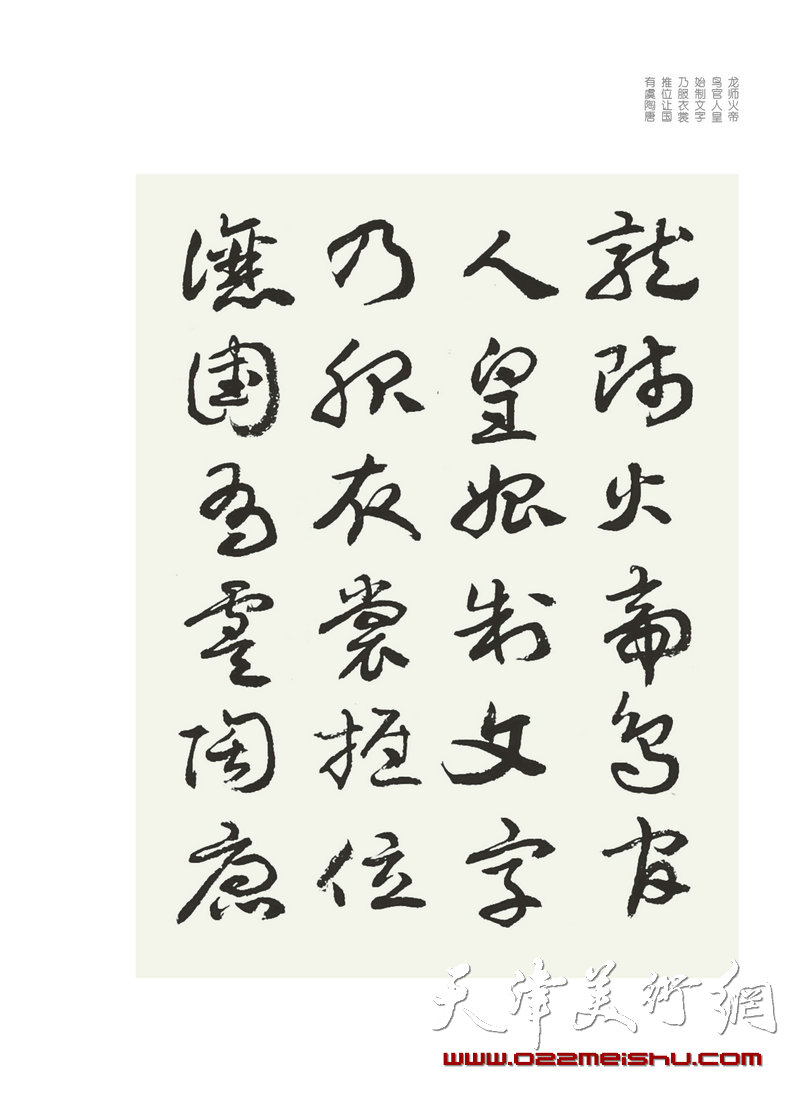 龙师火帝
鸟官人皇
始制文字
乃服衣裳
推位让国
有虞陶唐
龍師火帝鳥官
人皇始制文字
乃服衣裳推位
讓國有虞陶唐
天津美術網
www.022meishu.com